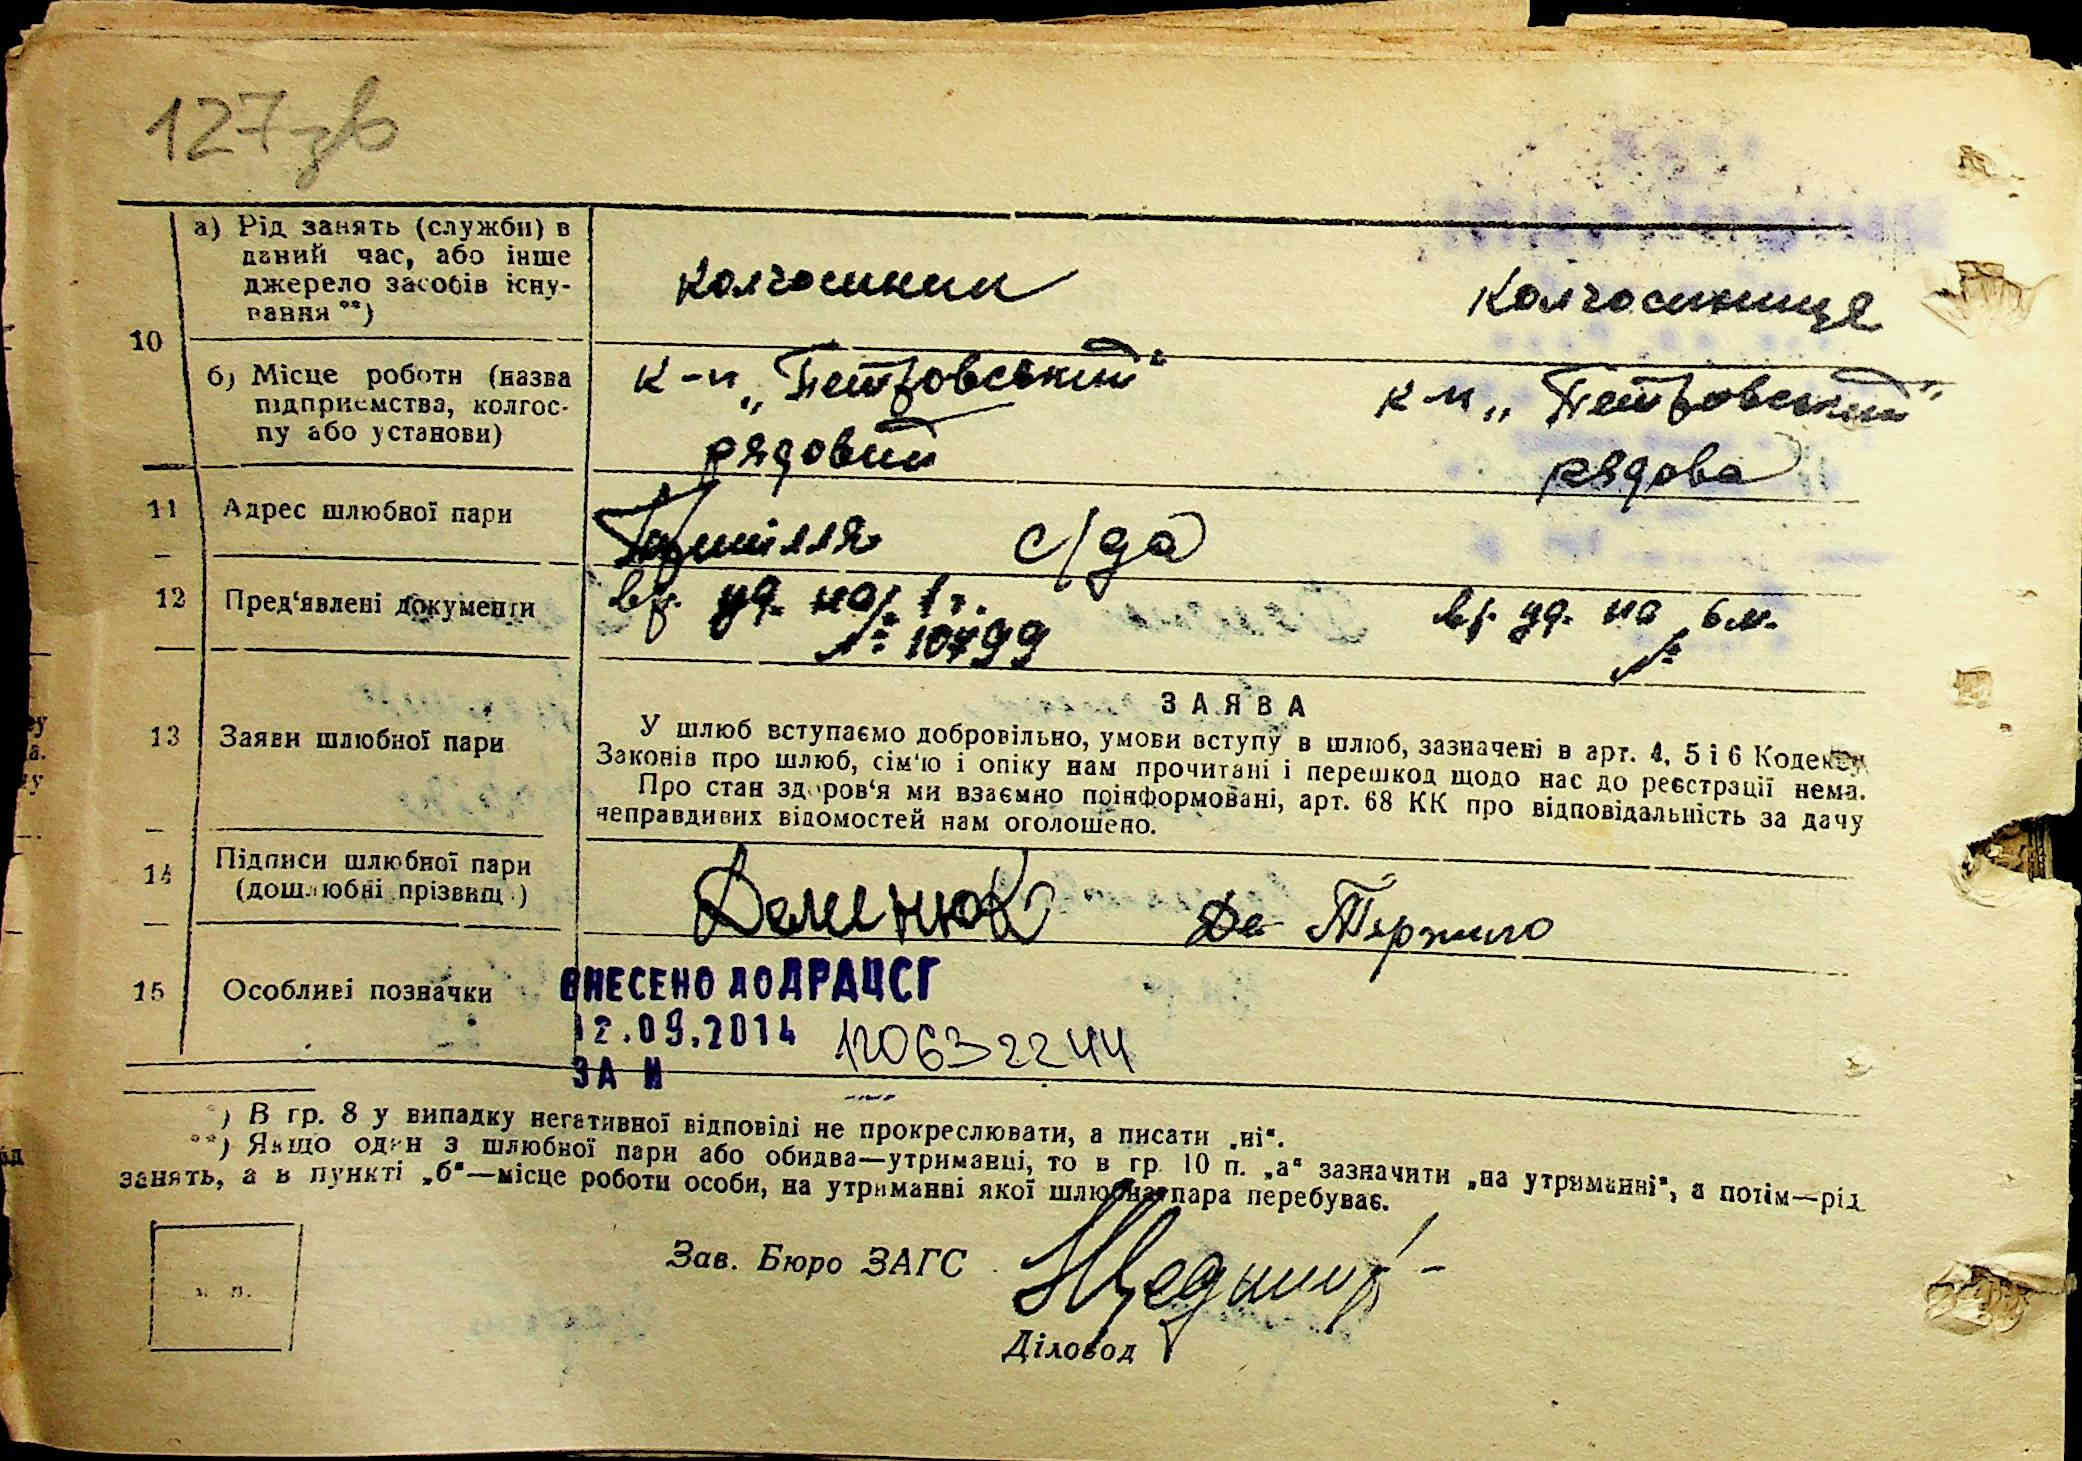 127 зв
а) Рід занять (служби) в
даний час, або інше
джерело засобів існу-
вання **)
колгоспник
колгоспниця
10
б) Місце роботи (назва
підприємства, колгос-
пу або установи)
к-п „Петровський“
рядовий
к-п „Петровський“
рядова
11
Адрес шлюбної пари
с/да
12
Пред'явлені документи
вр. уд. на 1 г.
№ 10799
вр. уд. на 6 м.
№
13
Заяви шлюбної пари
ЗАЯВА
У шлюб вступаємо добровільно, умови вступу в шлюб, зазначені в арт. 4, 5 і 6 Кодексу
Законів про шлюб, сім'ю і опіку нам прочитані і перешкод щодо нас до реєстрації нема.
Про стан здоров'я ми взаємно поінформовані, арт. 68 КК про відповідальність за дачу
неправдивих відомостей нам оголошено.
14
Підписи шлюбної пари
(дошлюбні прізвищ )
Деменюк
Де Тержило
15
Особливі позначки
ВНЕСЕНО ДО ДРАЦСГ
12.09.2014 120632244
ЗА №
*) В гр. 8 у випадку негативної відповіді не прокреслювати, а писати „ні“.
**) Якщо один з шлюбної пари або обидва—утриманці, то в гр. 10 п. „а“ зазначити „на утриманні“, а потім—рід
занять, а в пункті „б“—місце роботи особи, на утриманні якої шлюбна пара перебуває.
Зав. Бюро ЗАГС
Діловод
м. п.